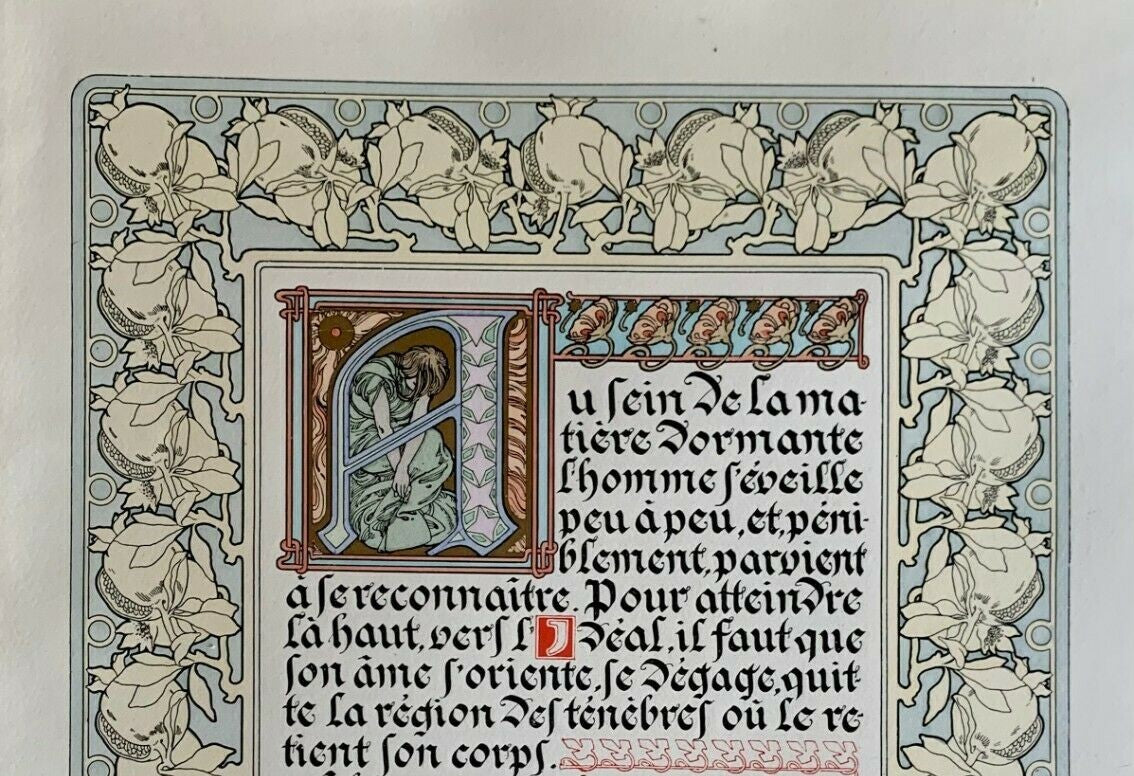 Au sein de la ma-
tière dormante
l'homme s'éveille
peu à peu, et, péni-
blement, parvient
à se reconnaître. Pour atteindre
là haut, vers l'Idéal, il faut que
son âme s'oriente, se dégage, quit-
te la région des ténèbres où le re-
tient son corps.